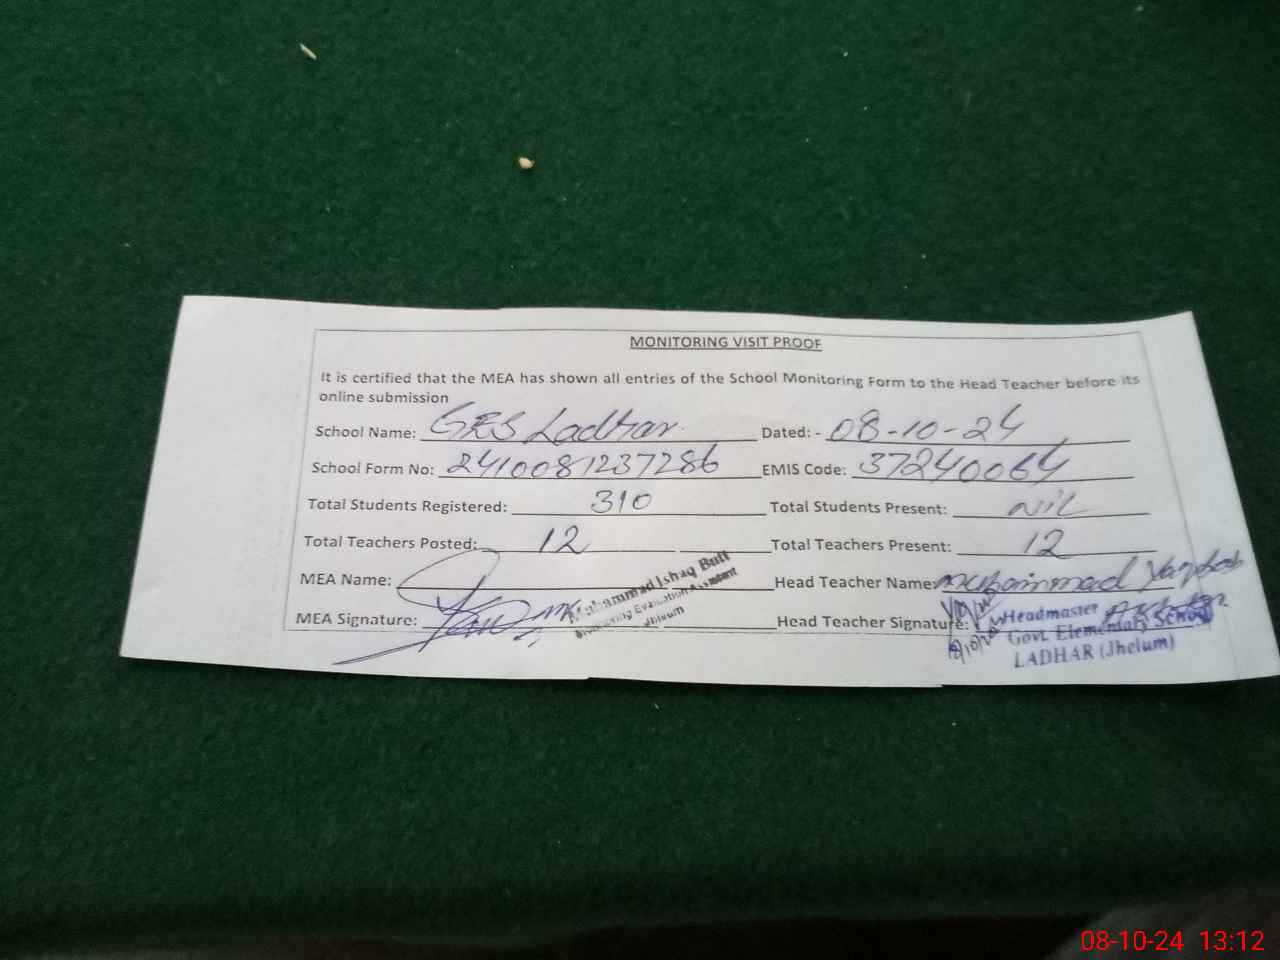 MONITORING VISIT PROOF
It is certified that the MEA has shown all entries of the School Monitoring Form to the Head Teacher before its
online submission
School Name: GES Ladhar Dated: - 08-10-24
School Form No: 2410081237286 EMIS Code: 37240064
Total Students Registered: 310 Total Students Present: Nil
Total Teachers Posted: 12 Total Teachers Present: 12
MEA Name: Muhammad Ishaq Butt Head Teacher Name: Muhammad
Monitoring Evaluation Assistant
Jhleum
MEA Signature: Head Teacher Signature:
Headmaster
Govt. Elementary School
LADHAR (Jhelum)
08-10-24 13:12